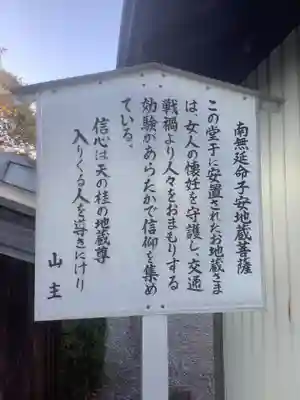 南無延命子安地蔵菩薩
この堂宇に安置されたお地蔵さま
は女人の懐妊を守護し、交通
戦禍より人々をおまもりする
効験があらたかで信仰を集め
ている。
信心は天の桂の地蔵尊
入りくる人を導きにけり
山主